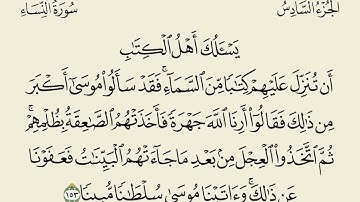 الجُزءُ السَّادِسُ
سُورَةُ النِّسَاءِ
يَسْـَٔلُكَ أَهْلُ ٱلْكِتَٰبِ
أَن تُنَزِّلَ عَلَيْهِمْ كِتَٰبًا مِّنَ ٱلسَّمَآءِۚ فَقَدْ سَأَلُوا۟ مُوسَىٰٓ أَكْبَرَ
مِن ذَٰلِكَ فَقَالُوٓا۟ أَرِنَا ٱللَّهَ جَهْرَةً فَأَخَذَتْهُمُ ٱلصَّٰعِقَةُ بِظُلْمِهِمْۚ
ثُمَّ ٱتَّخَذُوا۟ ٱلْعِجْلَ مِنۢ بَعْدِ مَا جَآءَتْهُمُ ٱلْبَيِّنَٰتُ فَعَفَوْنَا
عَن ذَٰلِكَۚ وَءَاتَيْنَا مُوسَىٰ سُلْطَٰنًا مُّبِينًا ١٥٣